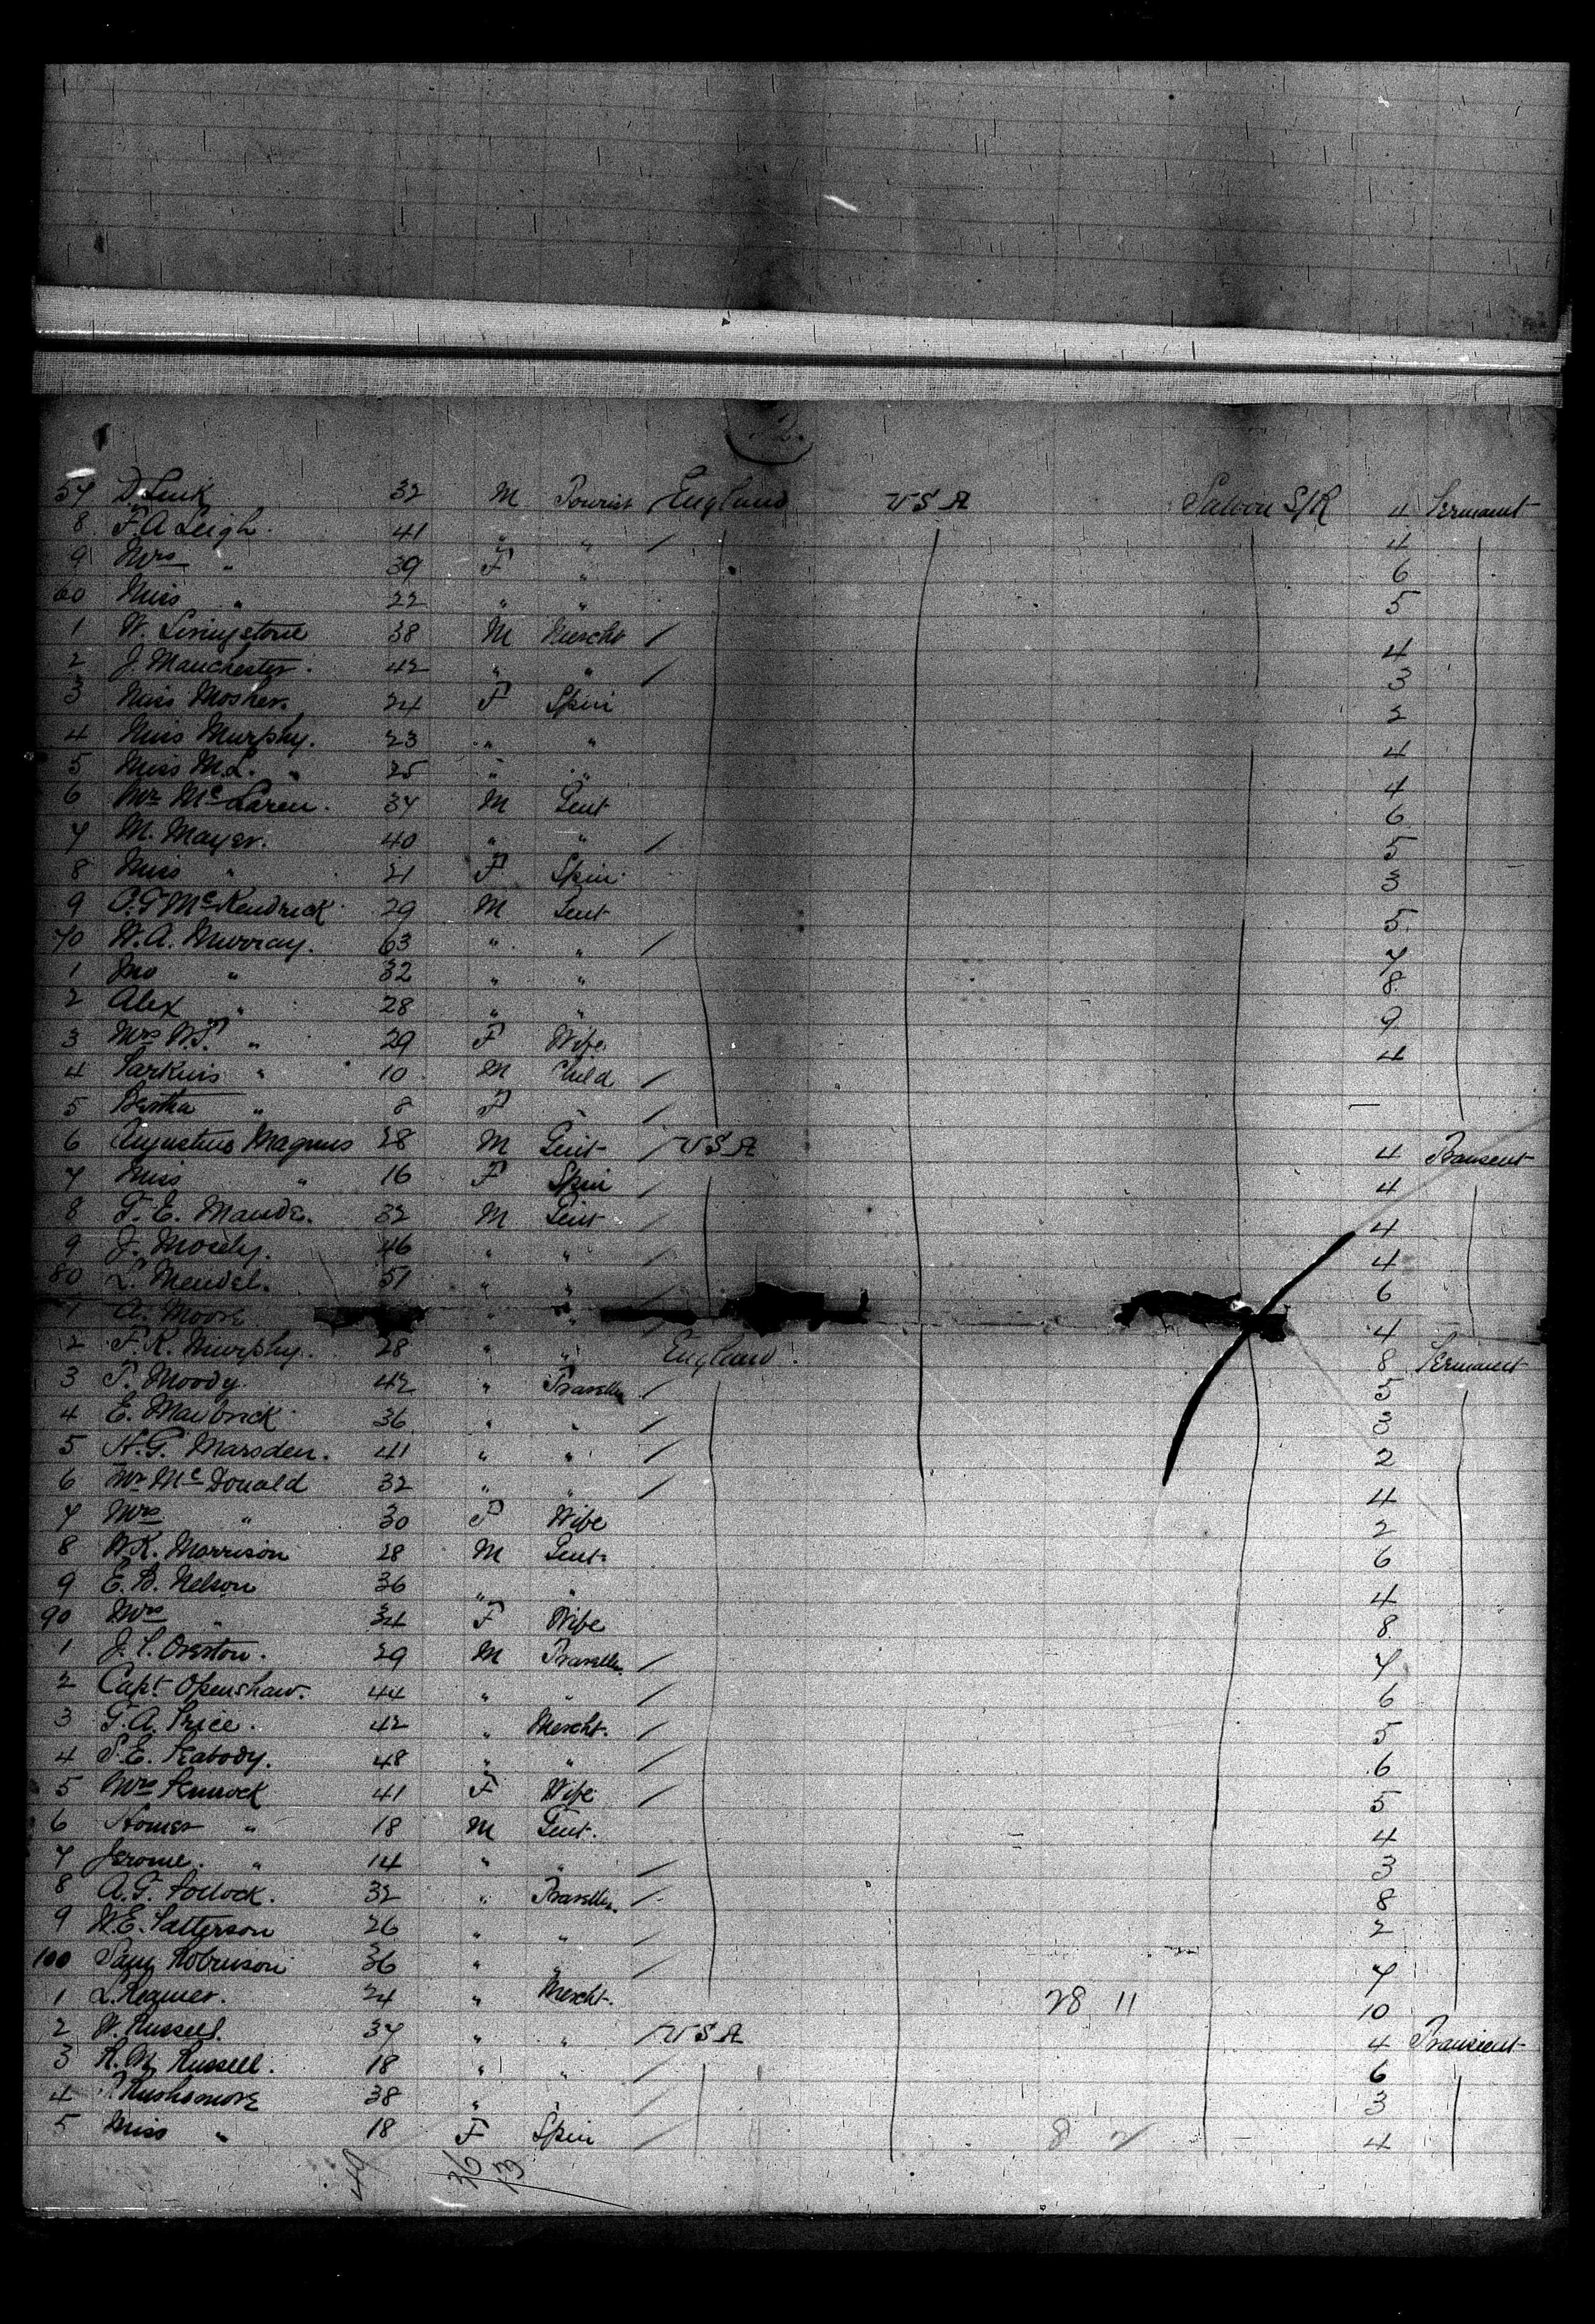 2.
57 D. Lusk 32 M Tourist England U S A Saloon S/R 4 Permanent
8 F. A. Leigh. 41 " " / 4
9 Mrs " 39 F " 6
60 Miss " 22 " " 5
1 W. Livingstone 38 M Mercht / 4
2 J. Manchester. 42 " " / 3
3 Miss Mosher. 24 F Spin 2
4 Miss Murphy. 23 " " 4
5 Miss M. L. " 25 " " 4
6 Mr McLaren. 37 M Gent 6
7 M. Mayer. 40 " " / 5
8 Miss " 21 F Spin 3
9 McKendrick 29 M Gent 5
70 W. A. Murray. 63 " " / 7
1 Jno " 32 " " 8
2 Alex " 28 " " 9
3 Mrs W. T. " 29 F Wife 4
4 " 10 M Child /
5 Bertha " 8 F " / —
6 Augustus Magnus 28 M Gent / U S A 4 Transient
7 Miss " 16 F Spin / 4
8 T. E. Maude. 32 M Gent / 4
9 J. Morely. 46 " " / 4
80 L. Mendel. 51 " " 6
1 A. Moore " " / 4
2 F. K. Murphy. 28 " " England 8 Permanent
3 P. Moody. 42 " Traveller / 5
4 E. Mavbrick 36 " " / 3
5 H. G. Marsden. 41 " " / 2
6 Mr McDonald 32 " " / 4
7 Mrs " 30 F Wife 2
8 W. K. Morrison 28 M Gent 6
9 E. B. Nelson 36 " " 4
90 Mrs " 34 F Wife 8
1 J. S. Overton. 29 M Traveller / 7
2 Capt Openshaw. 44 " " / 6
3 T. A. Price. 42 " Mercht. / 5
4 S. E. Peabody. 48 " " / 6
5 Mrs Pennock 41 F Wife / 5
6 Homer " 18 M Gent. 4
7 Jerome. " 14 " " / 3
8 A. G. Pollock. 32 " Traveller / 8
9 W. E. Patterson 26 " " / 2
100 Sam Robinson 36 " " / 7
1 L. Reamer. 24 " Mercht. 28 11 10
2 W. Russell. 37 " " / U S A 4 Transient
3 R. W. Russell. 18 " " / 6
4 Rushsmore 38 " " / 3
5 Miss " 18 F Spin / 8 4
49 36 13